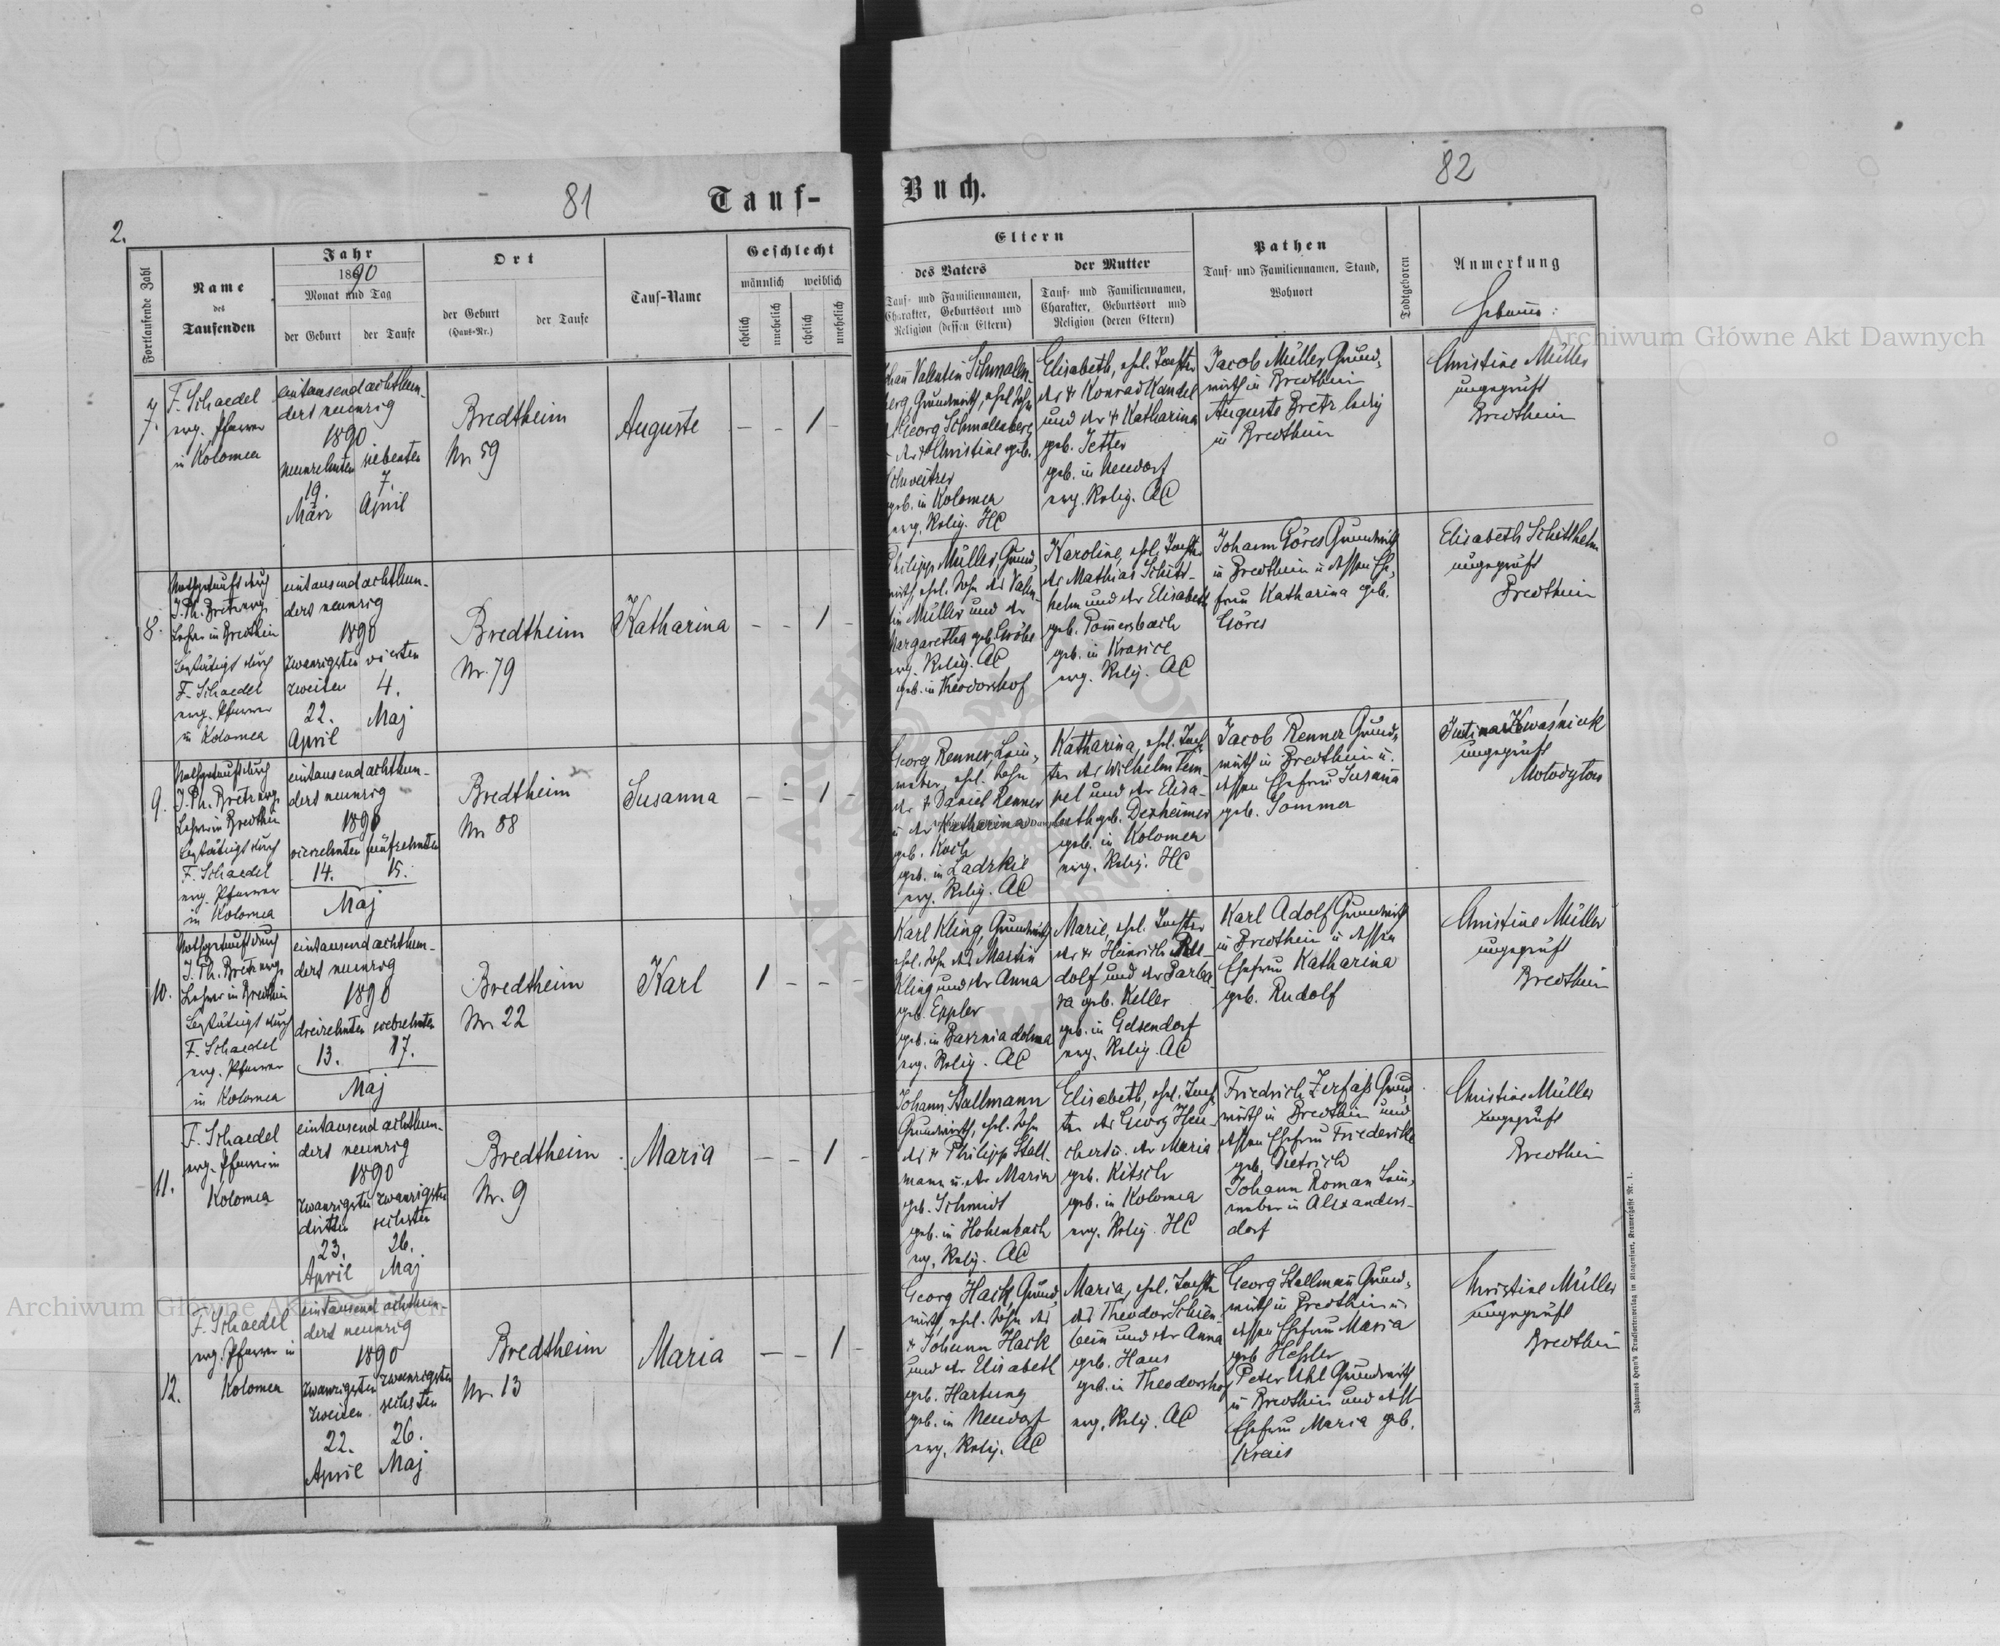 81
82
Tauf-
Buch.
2.
Fortlaufende Zahl
Name
des
Taufenden
Jahr
1890
Monat und Tag
der Geburt
der Taufe
Ort
der Geburt
(Haus-Nr.)
der Taufe
Tauf-Name
Geschlecht
männlich
weiblich
ehelich
unehelich
ehelich
unehelich
Eltern
des Vaters
Tauf- und Familiennamen,
Charakter, Geburtsort und
Religion (dessen Eltern)
der Mutter
Tauf- und Familiennamen,
Charakter, Geburtsort und
Religion (deren Eltern)
Pathen
Tauf- und Familiennamen, Stand,
Wohnort
Todtgeboren
Anmerkung
7.
F. Schaedel
evg. Pfarrer
in Kolomea
eintausendachthun-
dert neunzig
1890
neunzehnten
19.
März
siebenten
7.
April
Bredtheim
Nr. 59
Auguste
— – 1 –
Valentin Schmalen-
berg, Grundwirth, ehel. Sohn
Georg Schmalenberg
der + Christine geb.
Schweitzer
geb. in Kolomea
evg. Relig. HC
Elisabeth, ehel. Tochter
des + Konrad Kandel
und der + Katharina
geb. Jetter
geb. in Neudorf
evg. Relig. AC
Jacob Müller Grund-
wirth in Bredtheim
Auguste Bretz ledig
in Bredtheim
Christine Müller
ungeprüft
Bredtheim
8.
Nothgetauft durch
J. Ph. Bretz evg.
Lehrer in Bredtheim
bestätigt durch
F. Schaedel
evg. Pfarrer
in Kolomea
eintausendachthun-
dert neunzig
1890
zwanzigsten
zweiten
22.
April
vierten
4.
Maj
Bredtheim
Nr. 79
Katharina
– – 1 –
Philipp Müller, Grund-
wirth, ehel. Sohn des Valen-
tin Müller und der
Margaretha geb. Gröbe
evg. Relig. AC
geb. in Theodorshof
Karoline, ehel. Tochter
des Mathias Schitt-
helm und der Elisabeth
geb. Pomersbach
geb. in Krasice
evg. Relig. AC
Johann Göres Grundwirth
in Bredtheim u dessen Ehe-
frau Katharina geb.
Göres
Elisabeth Schitthelm
ungeprüft
Bredtheim
9.
Nothgetauft durch
J. Ph. Bretz evg.
Lehrer in Bredtheim
bestätigt durch
F. Schaedel
evg. Pfarrer
in Kolomea
eintausendachthun-
dert neunzig
1890
vierzehnten
fünfzehnten
14.
15.
Maj
Bredtheim
Nr. 88
Susanna
– – 1 –
Georg Renner, Lein-
weber, ehel. Sohn
des + Daniel Renner
u der Katharina
geb. Koch
geb. in Ladzkie
evg. Relig. AC
Katharina, ehel. Toch-
ter des Wilhelm Tem-
pel und der Elisa-
beth geb. Dexheimer
geb. in Kolomea
evg. Relig. HC
Jacob Renner Grund-
wirth in Bredtheim u.
dessen Ehefrau Susana
geb. Sommer
Justina Kwaśniuk
ungeprüft
Molodytow
10.
Nothgetauft durch
J. Ph. Bretz evg.
Lehrer in Bredtheim
bestätigt durch
F. Schaedel
evg. Pfarrer
in Kolomea
eintausendachthun-
dert neunzig
1890
dreizehnten
siebzehnten
13.
17.
Maj
Bredtheim
Nr. 22
Karl
1 – – –
Karl Kling, Grundwirth
ehel. Sohn des Martin
Kling und der Anna
geb. Eppler
geb. in Baznia dolina
evg. Relig. AC
Marie, ehel. Tochter
des + Heinrich Ru-
dolf und der Barba-
ra geb. Keller
geb. in Gelsendorf
evg. Relig. AC
Karl Adolf Grundwirth
in Bredtheim u dessen
Ehefrau Katharina
geb. Rudolf
Christine Müller
ungeprüft
Bredtheim
11.
F. Schaedel
evg. Pfarrer in
Kolomea
eintausendachthun-
dert neunzig
1890
zwanzigsten
dritten
23.
April
zwanzigsten
sechsten
26.
Maj
Bredtheim
Nr. 9
Maria
– – 1 –
Johann Stallmann
Grundwirth, ehel. Sohn
des + Philipp Stall-
mann u. der Maria
geb. Schmidt
geb. in Hohenbach
evg. Relig. AC
Elisabeth, ehel. Toch-
ter des Georg Heu-
chert u. der Maria
geb. Kitsch
geb. in Kolomea
evg. Relig. HC
Friedrich Zerfaß Grund-
wirth in Bredtheim und
dessen Ehefrau Friedericke
geb. Dietrich
Johann Roman Lein-
weber in Alexanders-
dorf
Christine Müller
ungeprüft
Bredtheim
12.
F. Schaedel
evg. Pfarrer in
Kolomea
eintausendachthun-
dert neunzig
1890
zwanzigsten
zweiten
22.
April
zwanzigsten
sechsten
26.
Maj
Bredtheim
Nr. 13
Maria
— – 1 –
Georg Hack Grund-
wirth, ehel. Sohn des
+ Johann Hack
und der Elisabeth
geb. Hartung
geb. in Neudorf
evg. Relig. AC
Maria, ehel. Tochter
des Theodor Schien-
bein und der Anna
geb. Haus
geb. in Theodorshof
evg. Relig. AC
Georg Stallmañ Grund-
wirth in Bredtheim u
dessen Ehefrau Maria
geb Heßler
Peter Uhl Grundwirth
in Bredtheim und dess.
Ehefrau Maria geb.
Krais
Christine Müller
ungeprüft
Bredtheim
Johannes Heyn's Drucksortenverlag in Klagenfurt, Kramergasse Nr. 1.
Archiwum Główne Akt Dawnych
Archiwum Główne Akt Dawnych